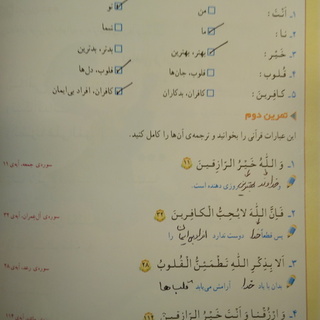 ۱. أَنْتَ : من تو
۲. نا : ما شما
۳. خَيْر : بهتر، بهترین بدتر، بدترین
۴. قُلوب : قلوب، جان‌ها قلوب، دل‌ها
۵. كافِرينَ : کافران، بدکاران کافران، افراد بی‌ایمان
تمرین دوم
این عبارات قرآنی را بخوانید و ترجمه‌ی آن‌ها را کامل کنید.
۱. وَ اللّٰهُ خَيْرُ الرّازِقينَ ۱۱ سوره‌ی جمعه، آیه‌ی ۱۱
و خداوند بهترین روزی دهنده است.
۲. فَاِنَّ اللّٰهَ لايُحِبُّ الْكافِرينَ ۳۲ سوره‌ی آل‌عمران، آیه‌ی ۳۲
پس قطعاً خدا دوست ندارد افراد بی‌ایمان را
۳. اَلا بِذِكْرِ اللّٰهِ تَطْمَئِنُّ الْقُلوبُ ۲۸ سوره‌ی رعد، آیه‌ی ۲۸
بدان با یاد خدا آرامش می‌یابد قلب‌ها
۴. وَ ارْزُقْنا وَ اَنْتَ خَيْرُ الرّازِقينَ ۱۱۴